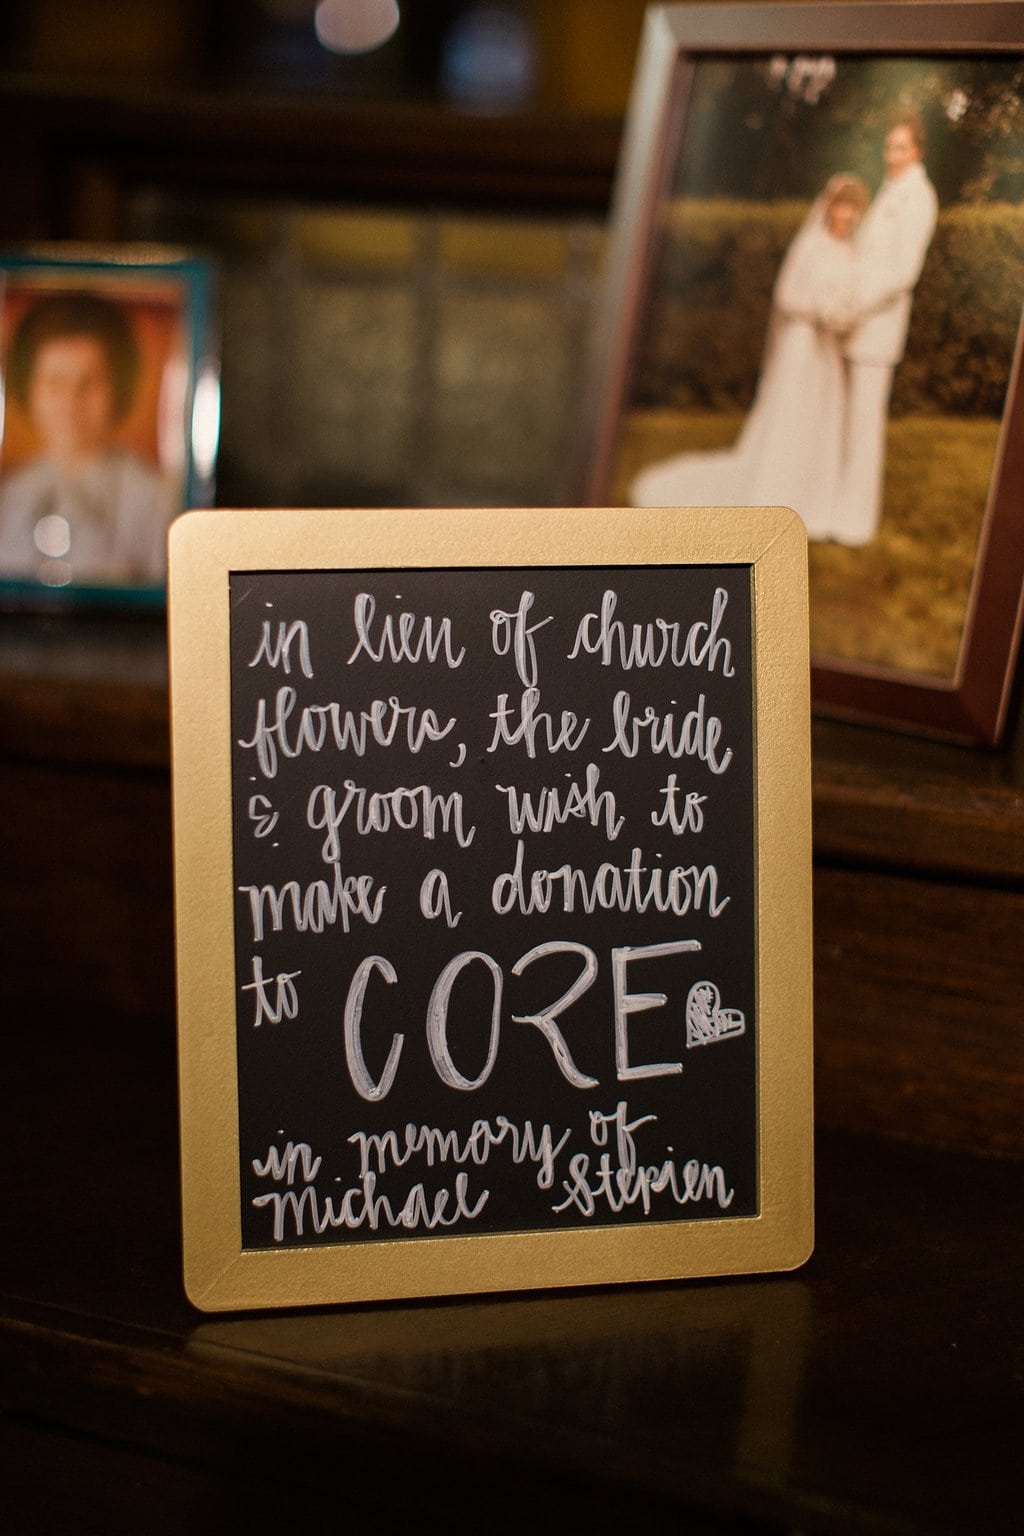 in lieu of church
flowers, the bride
& groom wish to
make a donation
to CORE
in memory of
Michael Stepien